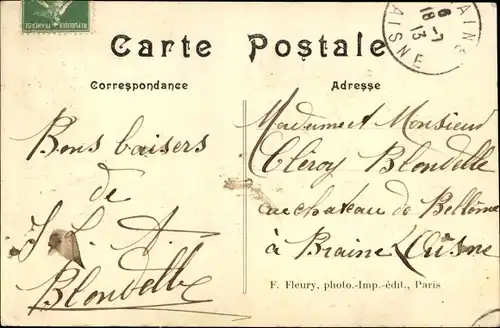 Carte Postale
Correspondance
Adresse
AISNE
6
18-7
13
Bons baisers
de
J. L. A.
Blondelle
Madame et Monsieur
Cléroy Blondelle
au chateau de Bellême
à Braine Aisne
F. Fleury, photo.-Imp.-édit., Paris